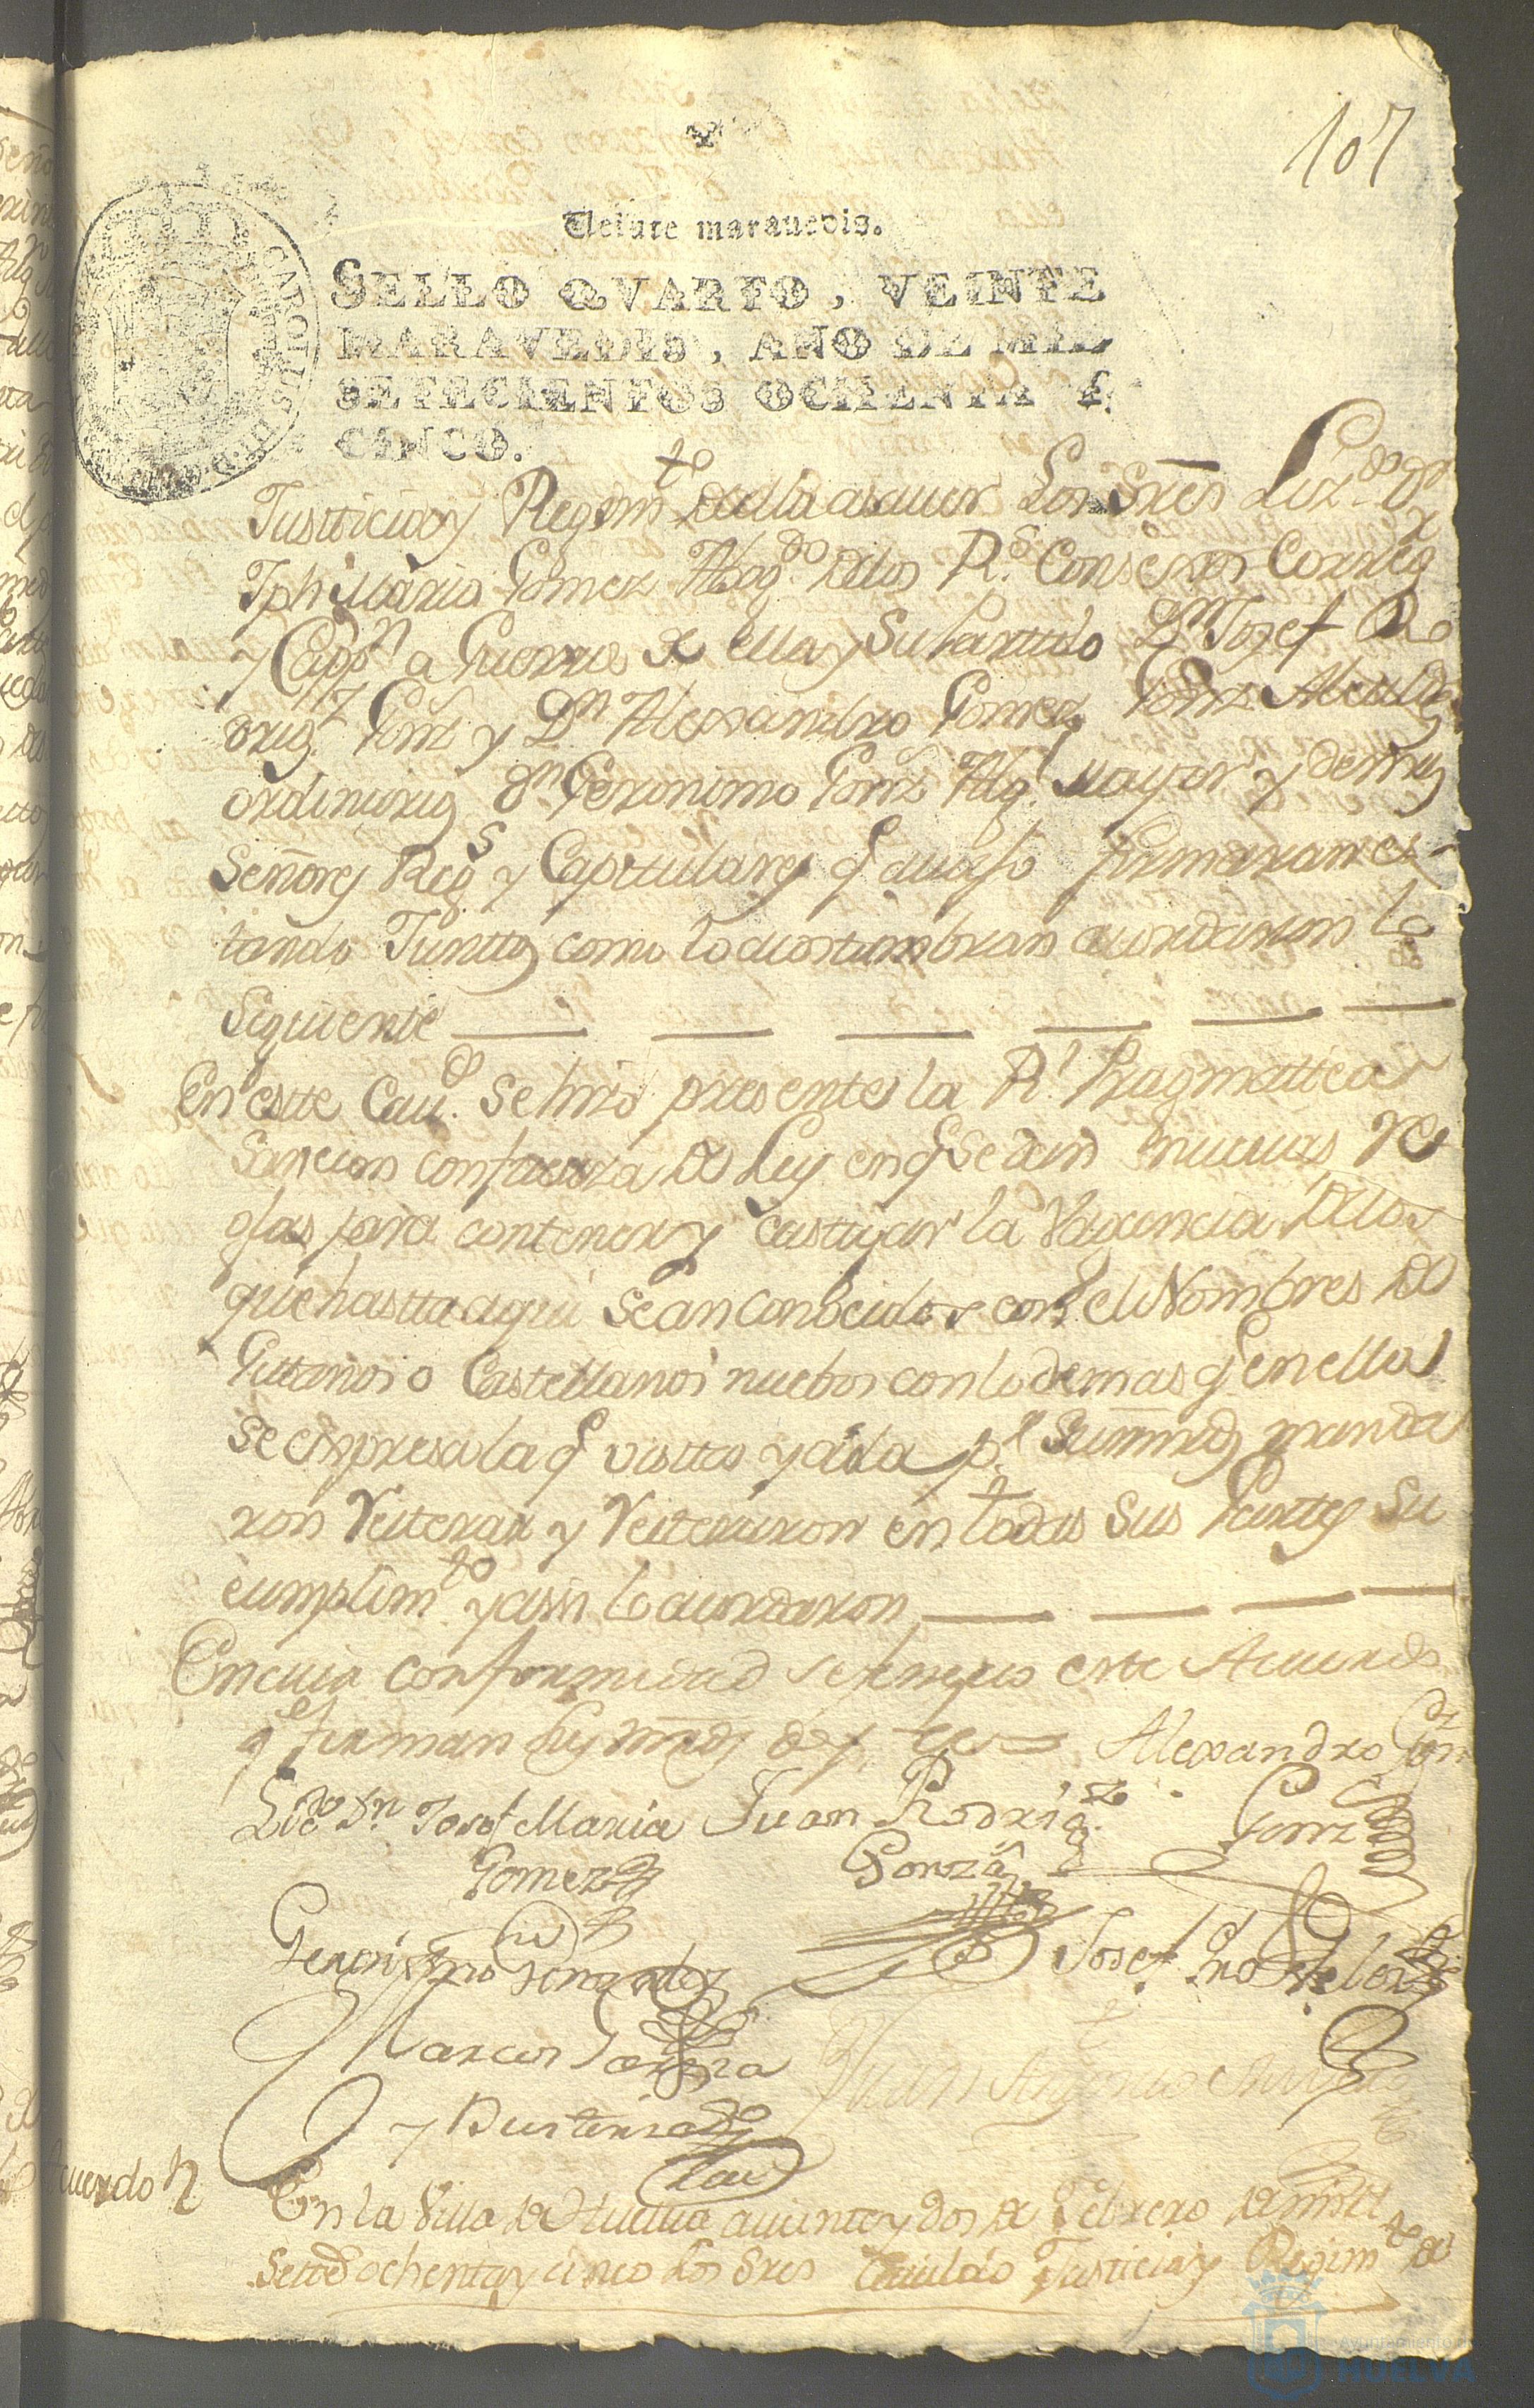 107
Veinte maravedis.
SELLO QVARTO, VEINTE
MARAVEDIS, AÑO DE MIL
SETECIENTOS OCHENTA Y
CINCO.
CAROLUS III D. G.
Justticia y Regimto della asauer Los Sres Lizdo Dn
Jph Maria Gomez Abogdo delos Rs Consejos Correg
y Cappn a Guerra de ella y su Partido Dn Josef Ro
drig Gonz y Dn Alexandro Gomez Gonz Alcaldes
ordinarios Dn Geronimo Gonz Algl mayor y demas
Señores Regs y Capitulares q auajo firmaran es
tando Junttos como lo acostumbran acordaron lo
Siguiente
En estte Cavdo se hizo presente la Rl Pragmattica
Sancion con fuerza de Ley en q se dan nuevas Re
glas para contener y castigar la vagancia delos
que hastta aqui sean conocido con el Nombres de
Gittanos o Castellanos nuebos con lo demas q en ella
se expresa la q vistta y oida pr Sus mrds manda
ron Reiterar y Reiteraron en todas sus Parttes su
cumplimto y assi lo acordaron
En cuia conformidad se feneçio este Acuerdo
qe firman sus mrds doy fee =
Alexandro Gom
Lido Dn Josef Maria
Gomez
Juan Rodrigz
Gonza
Gonz
Geronimo Fernandez
Josef
Marcos Garzia
y Bustam
Juan Antonio
Acuerdo
En la Villa de Huelva a veinte y dos de Febrero de mill
Settos ochenta y cinco los Sres Cauildo Justicia y Regimto de
Ayuntamiento de
HUELVA